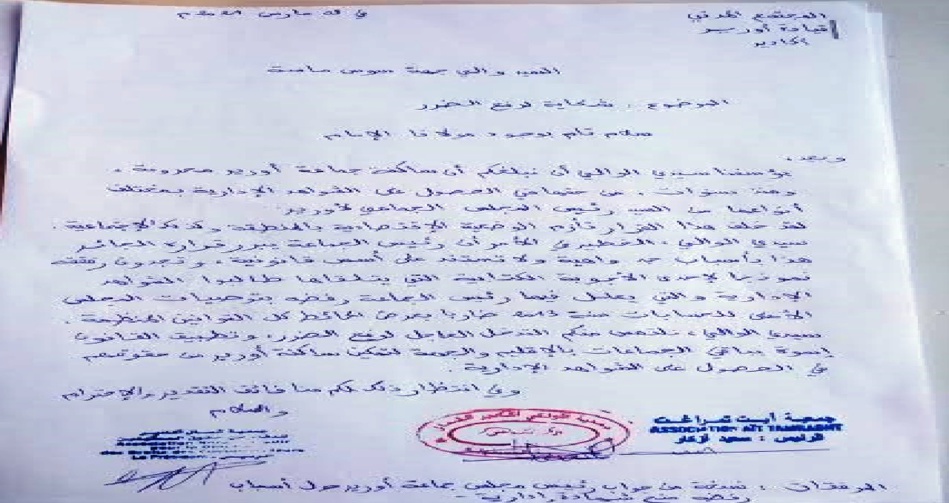 المجتمع المدني
قيادة أورير
أكادير
السيد والي جهة سوس ماسة
الموضوع : شكاية لرفع الضرر
سلام تام بوجود مولانا الإمام
وبعد،
يؤسفنا سيدي الوالي أن نبلغكم أن ساكنة جماعة أورير محرومة،
ومنذ سنوات، من الحصول على الشواهد الإدارية بمختلف
أنواعها من السيد رئيس المجلس الجماعي لأورير.
لقد خلف هذا القرار تأزم الوضعية الاقتصادية بالمنطقة وكذلك الاجتماعية.
سيدي الوالي، الخطير في الأمر أن رئيس الجماعة يبرر قراره الجائر
هذا بأسباب جد واهية ولا تستند على أسس قانونية، وتجدون رفقته
نموذجا لإحدى الأجوبة الكتابية التي يتلقاها طالبوا الشواهد
الإدارية والتي يعلل فيها رئيس الجماعة رفضه بتوصيات المجلس
الأعلى للحسابات ضاربا بعرض الحائط كل القوانين المنظمة.
سيدي الوالي، نلتمس منكم التدخل العاجل لرفع الضرر، وتطبيق القانون
إسوة بباقي الجماعات بالإقليم والجهة لتمكن ساكنة أورير من حقوقهم
في الحصول على الشواهد الإدارية.
وفي انتظار ذلك لكم منا فائق التقدير والاحترام
والسلام
جمعية أيت تمراغت
ASSOCIATION AIT TAMRAGHT
الرئيس : سعيد
المرفقات : نسخة من جواب رئيس مجلس جماعة أورير حول أسباب
رفضه منح شهادة إدارية